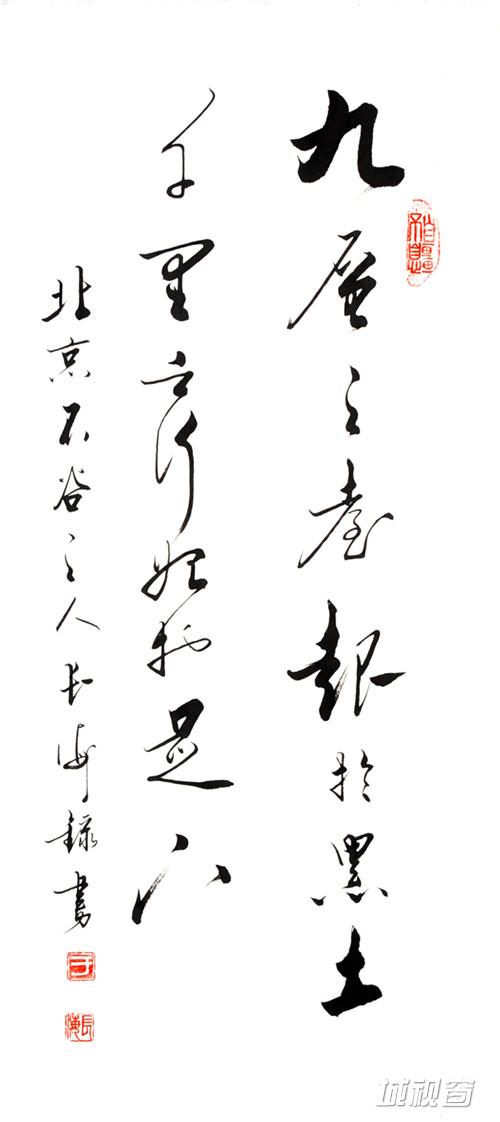 九層之臺起於累土
千里之行始於足下
北京石谷之人长海錄書
城视窗